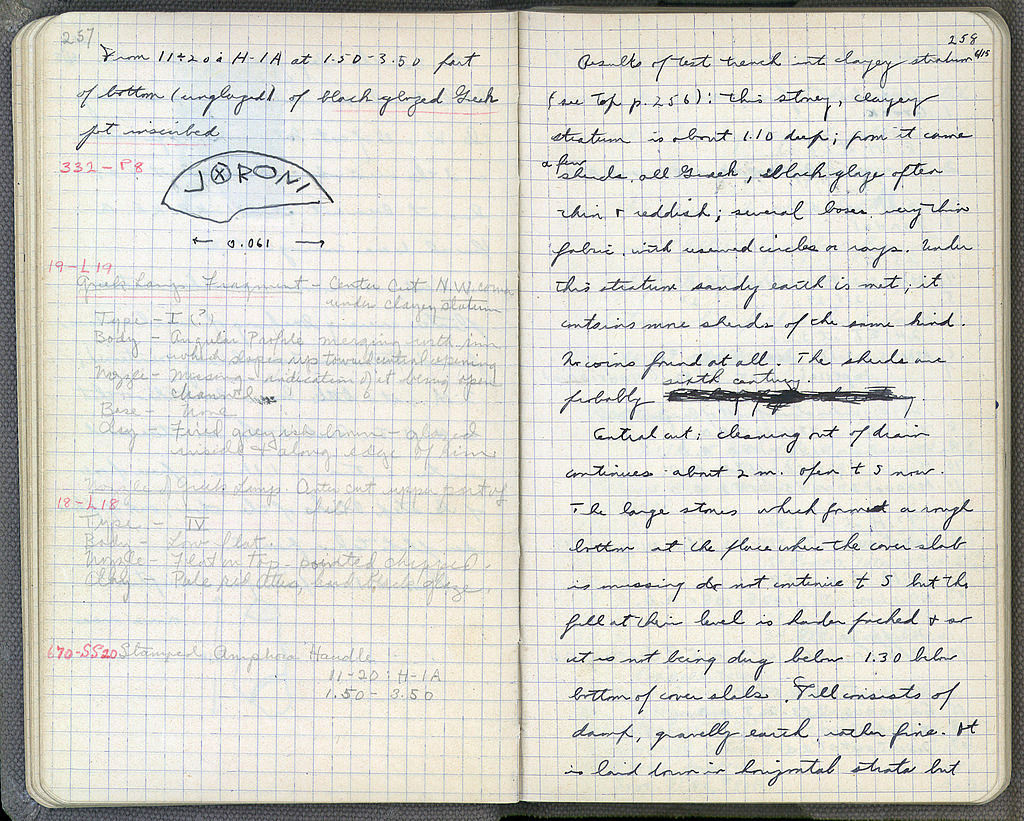 257
From 11-20: H-1A at 1.50-3.50 part
of bottom (unglazed) of black glazed Greek
pot inscribed
332-P8
J⊗RONI
← 0.061 →
19-L19
Greek Lamp Fragment - Center Cut N.W. corner
under clayey stratum
Type - I (?)
Body - Angular Profile merging with rim
which slopes up toward central opening
Nozzle - missing - indication of it being open
channel
Base - None
Clay - Fired greyish brown - glazed
inside & along edge of rim
Nozzle of Greek Lamp. Center cut upper part of
fill
18-L18
Type - IV
Body - Low flat.
Nozzle - Flat on Top - pointed chipped.
Clay - Pale red Attic, black glaze.
670-SS20 Stamped Amphora Handle
11-20: H-1A
1.50 - 3.50
258
6/15
Results of test trench into clayey stratum
(see top p. 256): this stoney, clayey
stratum is about 1.10 deep; from it came
a few
sherds, all Greek, black glaze often
thin & reddish; several bases, very thin
fabric, with reserved circles or rays. Under
this stratum sandy earth is met; it
contains more sherds of the same kind.
No coins found at all. The sherds are
sixth century.
probably
Central cut: cleaning out of drain
continues - about 2 m. open to S now.
The large stones which formed a rough
bottom at the place where the cover slab
is missing do not continue to S but the
fill at their level is harder packed & so
it is not being dug below 1.30 below
bottom of cover slabs. Fill consists of
damp, gravelly earth, rather fine. It
is laid down in horizontal strata but